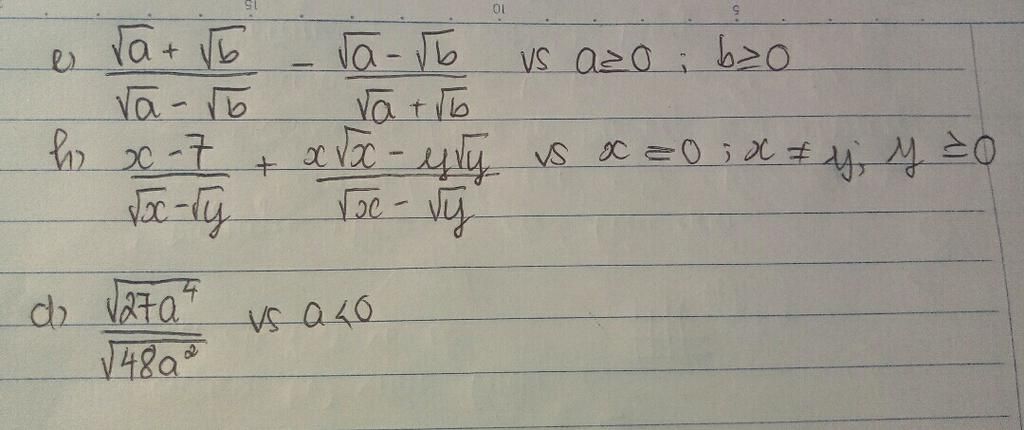 15 10 5
e) \frac{\sqrt{a} + \sqrt{b}}{\sqrt{a} - \sqrt{b}} - \frac{\sqrt{a} - \sqrt{b}}{\sqrt{a} + \sqrt{b}} vs a≥0 ; b≥0
h) \frac{x - 7}{\sqrt{x} - \sqrt{y}} + \frac{x\sqrt{x} - y\sqrt{y}}{\sqrt{x} - \sqrt{y}} vs x = 0 ; x ≠ y; y ≥0
d) \frac{\sqrt{27a^4}}{\sqrt{48a^2}} vs a<0